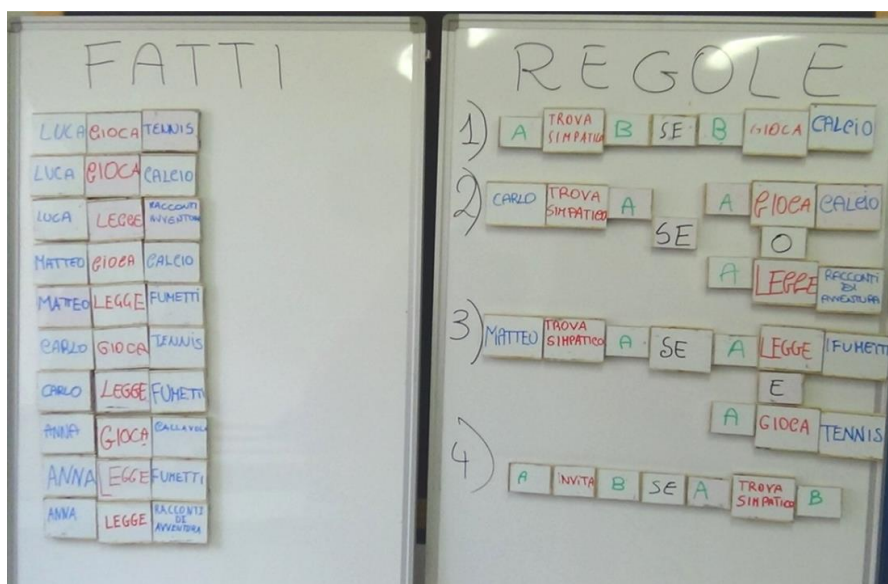 FATTI
LUCA GIOCA TENNIS
LUCA GIOCA CALCIO
LUCA LEGGE RACCONTI AVVENTURA
MATTEO GIOCA CALCIO
MATTEO LEGGE FUMETTI
CARLO GIOCA TENNIS
CARLO LEGGE FUMETTI
ANNA GIOCA CALLAVOLO
ANNA LEGGE FUMETTI
ANNA LEGGE RACCONTI DI AVVENTURA
REGOLE
1) A TROVA SIMPATICO B SE B GIOCA CALCIO
2) CARLO TROVA SIMPATICO A SE A GIOCA CALCIO
O
A LEGGE RACCONTI DI AVVENTURA
3) MATTEO TROVA SIMPATICO A SE A LEGGE I FUMETTI
E
A GIOCA TENNIS
4) A INVITA B SE A TROVA SIMPATICO B